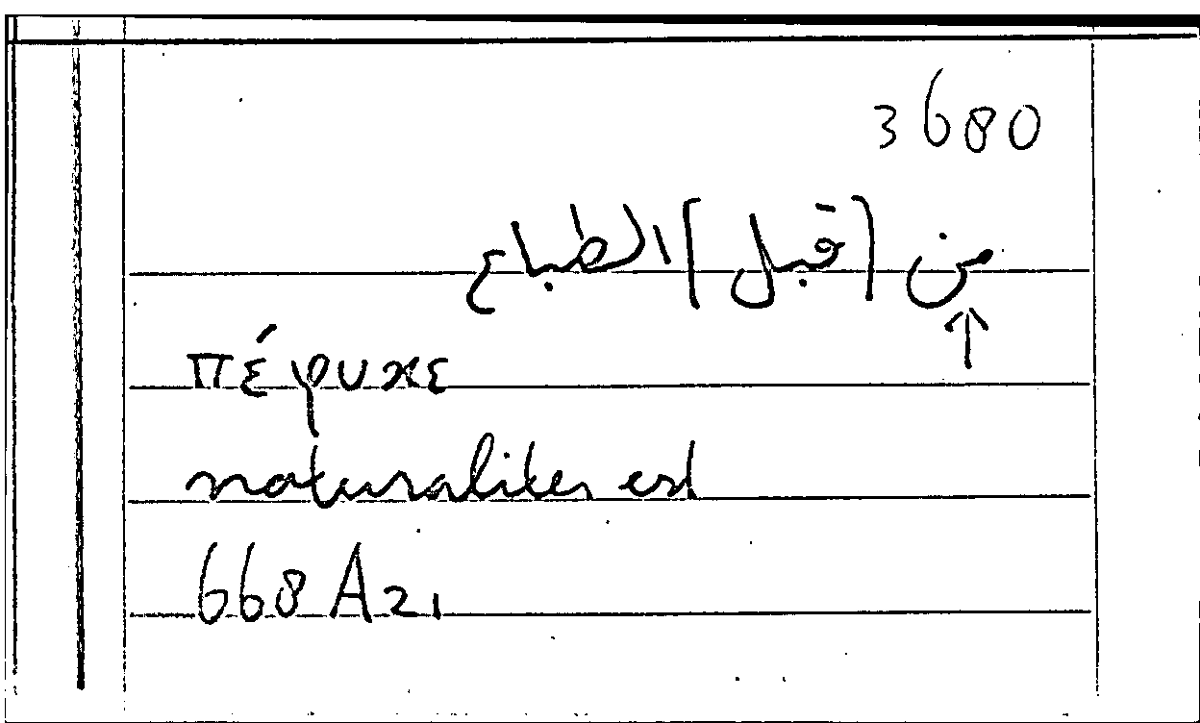 3680
من [قبل] الطباع
↑
πέφυκε
naturaliter est
668 A 21